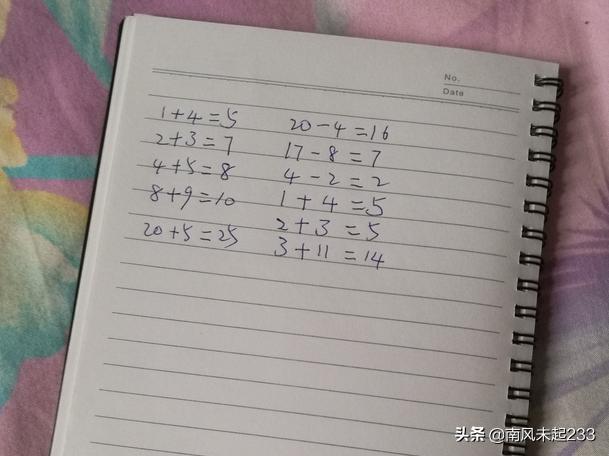 No.
Date
1+4=5 20-4=16
2+3=7 17-8=7
4+5=8 4-2=2
8+9=10 1+4=5
20+5=25 2+3=5
3+11=14
头条 @南风未起233